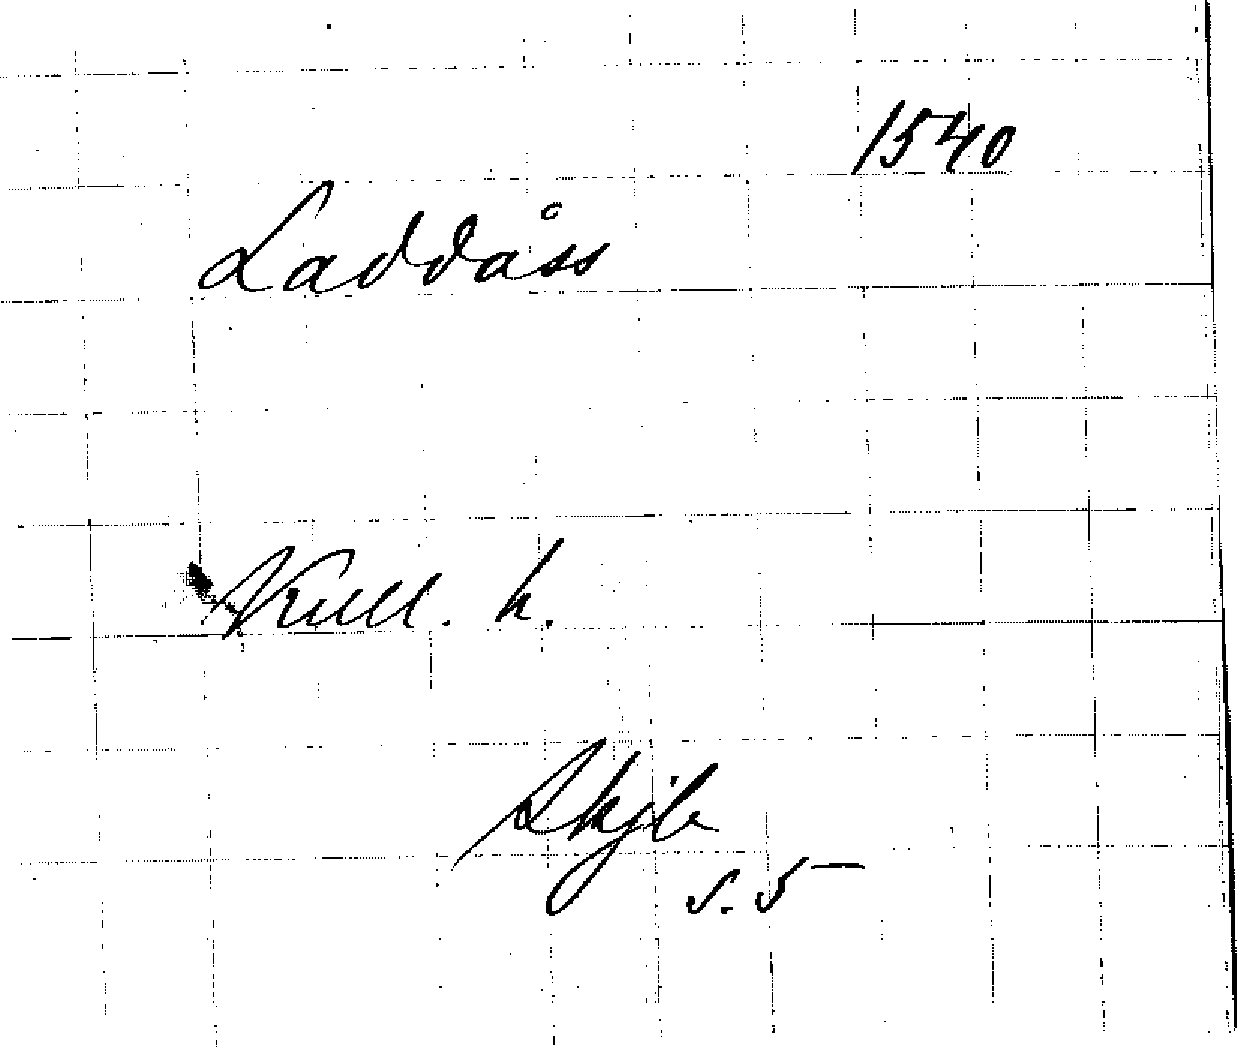 1540
Laddåss
Kull. h.
Skjb
s. 5